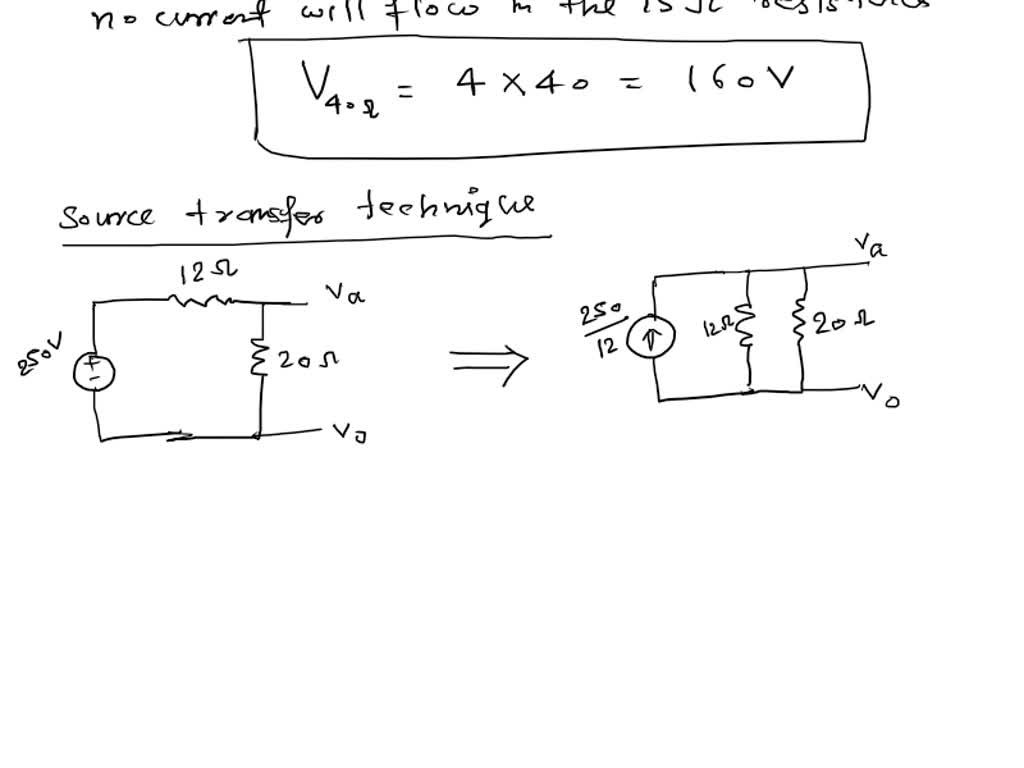 no current will flow in the 15 Ω
V40Ω = 4 × 40 = 160V
Source transfer technique
12Ω
Va
250V
+
-
20Ω
V0
⇒
Va
250/12
12Ω
20Ω
V0